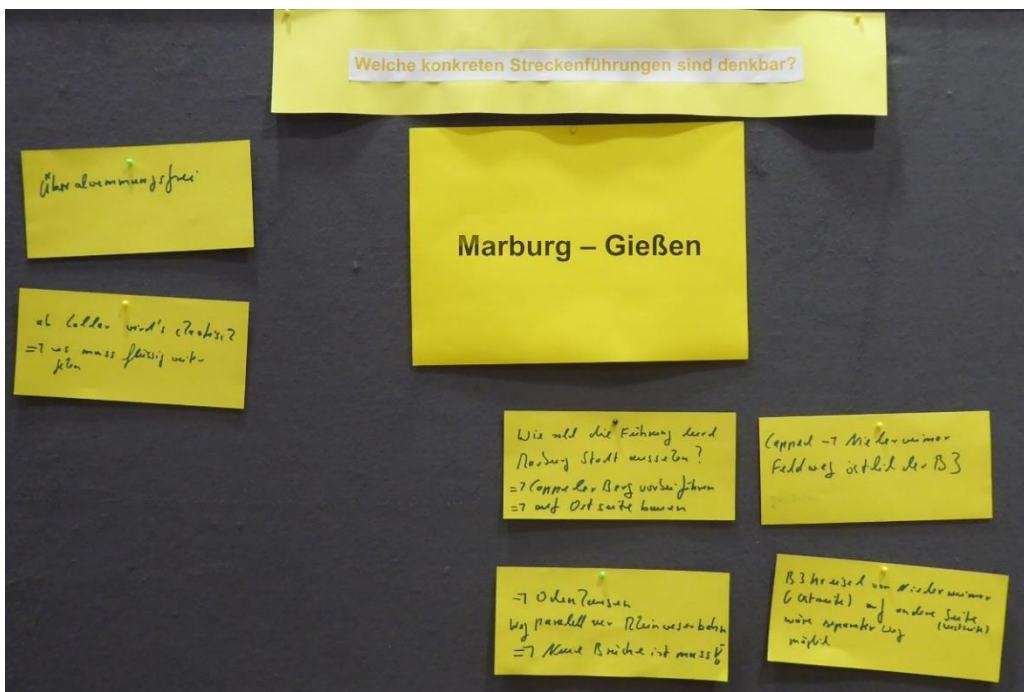 Welche konkreten Streckenführungen sind denkbar?
Marburg – Gießen
Überschwemmungsfrei
ab wird's
=> es muss flüssig weiter
Wie soll die Führung durch
Marburg Stadt aussehen?
=> Cappeler Berg vorbeiführen
=> auf Ostseite bauen
Cappel -> Niederweimar
Feldweg östlich der B3
=> Odenhausen
Weg parallel zur
=> Neue Brücke ist muss!
B3 Kreisel von Niederweimar
(Ostseite) auf andere Seite
(Westseite)
wäre separater Weg
möglich